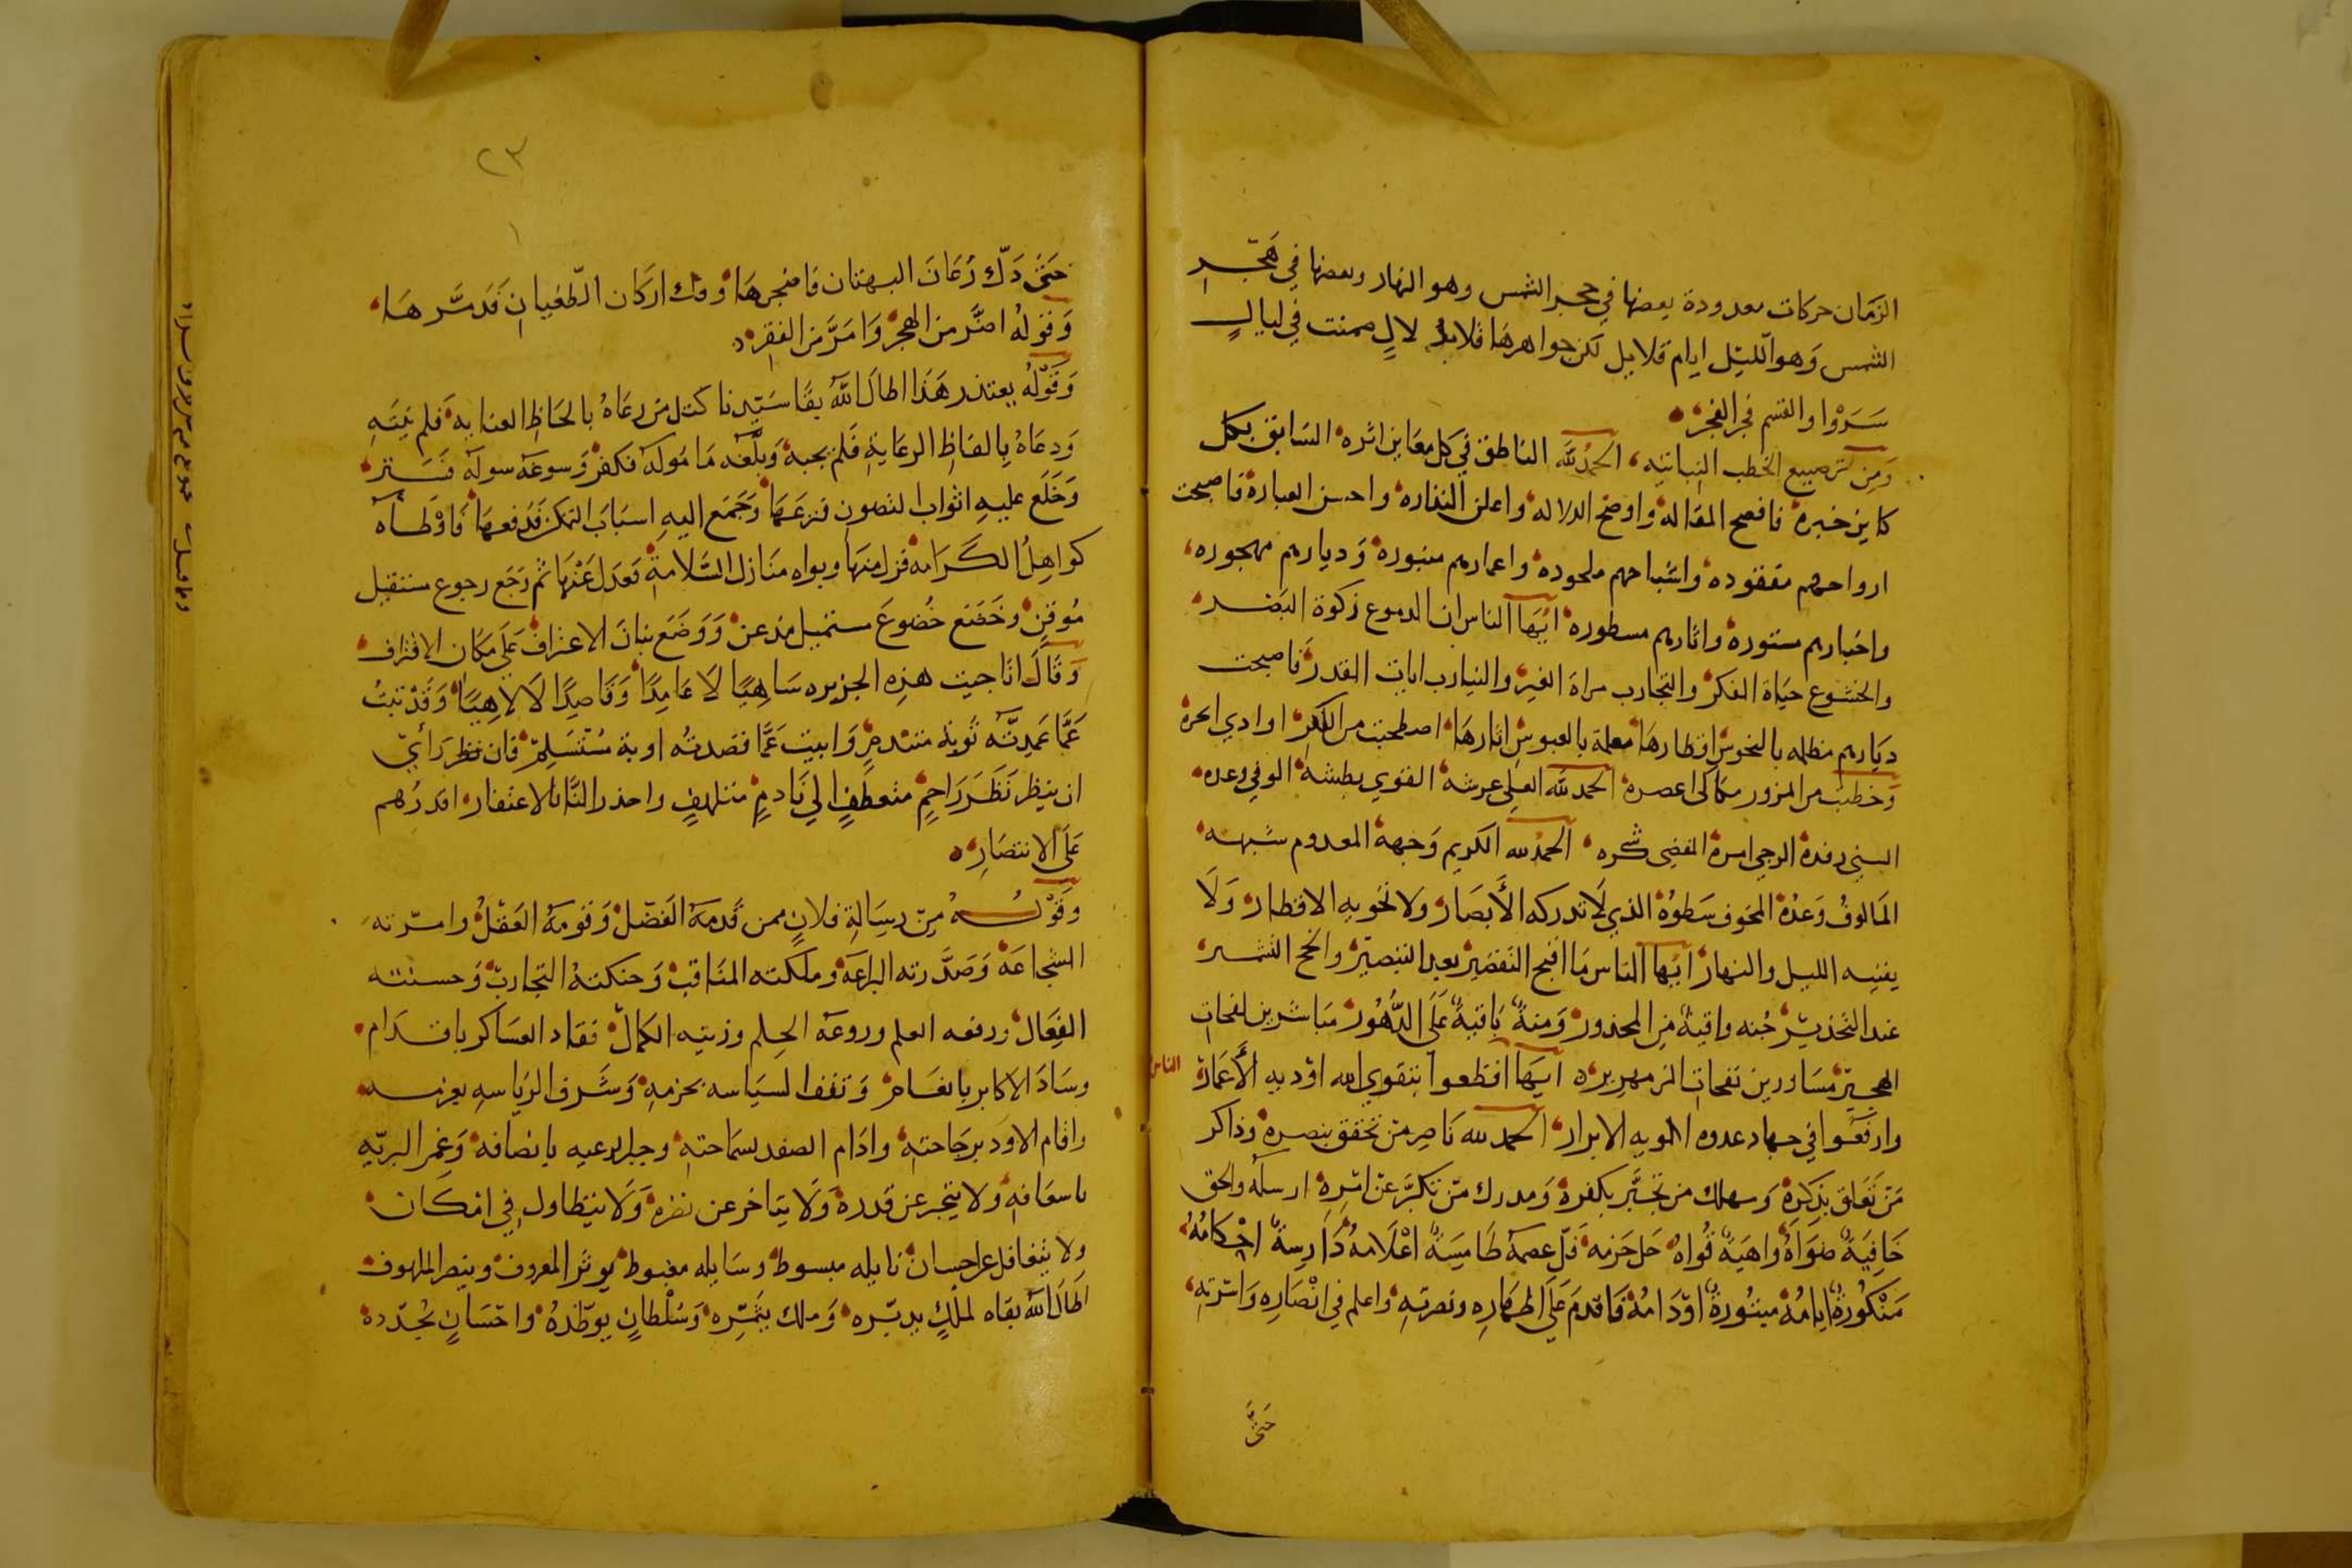 الزمان حركات معدودة بعضها في حجر الشمس وهو النهار وبعضها في هجر
الشمس وهو الليل ايام قلايل لكن جواهرها قلايد لالٍ صمنت في ليالٍ
سَرَوْا والقسم فجر الفجر
ومن ترصيع الخطب النباتيه الحمد لله الناطق في كل معاين اثره السابق بكل
كاين خبره فافصح المقاله واوضح الدلاله واعلن النذاره واحسن العبارة فاصبحت
ارواحهم مفقوده واشباحهم ملحوده واعمارهم مبتوره وديارهم مهجوره
واخبارهم مستوره واثارهم مسطوره ايها الناس ان الدموع زكوة البصر
والخشوع حياة الفكر والتجارب مراة الغير والنيارب ايات القدر فاصبحت
ديارهم مظلمه بالنحوس اقطارها معلمة بالعبوس اثارها
الحمد لله العلي عرشه القوي بطشه الوفي وعده
السني رفده الرجي امره القضي شكره الحمد لله الكريم وجهه المعدوم شبهه
المالوف وعده المخوف سطوه الذي لا تدركه الأبصار ولا تحويه الاقطار ولا
يفنيه الليل والنهار ايها الناس ما اقبح التقصير بعد التبصير وانجح التشمر
عند التحذير جنه واقية من المحذور ومنة باقية على الدهور مباشرين لفحات
الهجير مساورين نفحات الزمهرير ايها اقطعوا بتقوى الله اودية الأعمار
الناس
وارفعوا في جهاد عدوه الوية الابرار الحمد لله ناصر من تحقق بنصره وذاكر
من تعلق بذكره ومهلك من تجبر بكفره ومدرك من تكبر عن امره ارسله والحق
خافية صواه واهية قواه طامسة اعلامه دارسة احكامه
منكورة ايامه مبتورة اودامه فاقدم على اظهاره ونصرته واعلم في انصاره واسرته
حتى
٢٣
حتى دك رعان البهتان فافجرها وفك اركان الطغيان فدمرها
وقوله اضر من الهجر وامر من الفقر
وقوله يعتذر هذا اطال الله بقا سيدنا كتل من رعاه بالحاظ العنايه فلم ينته
ودعاه بالفاظ الرعاية فلم يجبه وبلغه ماموله فكفر وسوعه سوله فستر
وخلع عليه اثواب التصون فنزعها وجمع اليه اسباب التمكن فدفعها واوطاه
كواهل الكرامه فزل منها وبواه منازل السلامة فعدل عنها ثم رجع رجوع مستقيل
موقن وخضع خضوع مستميل مذعن ووضع بنان الاعتراف على مكان الاقتراف
وقال انا جيت هذه الجزيره ساهيا لا عامدا وقاصدا لا لاهيا وقد تبت
عما عمدته توبة متندم وابيت عما قصدته اوبة مستسلم فان نظر رأي
ان ينظر نظر راحم متعطف الي نادم متلهف واحذر الناس الاغتفار اقدرهم
على الانتصار
وقوله من رسالة فلان ممن قدمه الفضل وقومه العقل وامرته
الشجاعة وصدرته البراعة وملكته المناقب وحنكته التجارب وحسنته
الفعال ورفعه العلم وروعه الحلم وزينه الكمال فقاد العساكر باقدام
وساد الاكابر بانعام وثقف السياسه بحزمه وشرف الرياسه بعزمه
واقام الاود برجاحته وادام الصفد لسماحته وجبر الرعيه بانصافه وغمر البريه
باسعافه ولا يتجبر عن قدره ولا يتاخر عن نفره ولا يتطاول في امكان
ولا يتغافل عن احسان نايله مبسوط وسايله مغبوط يوثر المعروف وينصر الملهوف
اطال الله بقاه لملك يدبره وملك يثمره وسلطان يوطده واحسان يجدده